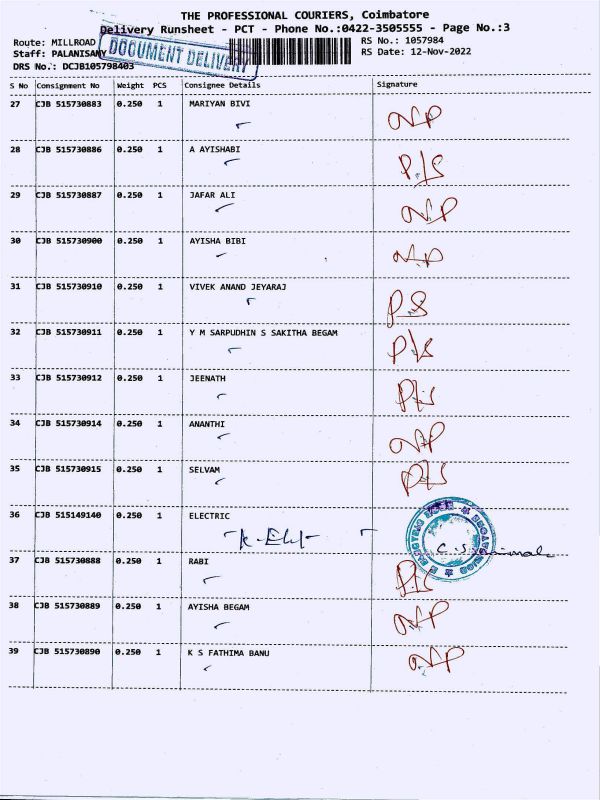 THE PROFESSIONAL COURIERS, Coimbatore
Delivery Runsheet - PCT - Phone No.:0422-3505555 - Page No.:3
Route: MILLROAD RS No.: 1057984
Staff: PALANISAMY RS Date: 12-Nov-2022
DOCUMENT DELIVERY
DRS No.: DCJB105798403
S No Consignment No Weight PCS Consignee Details Signature
27 CJB 515730883 0.250 1 MARIYAN BIVI NP
28 CJB 515730886 0.250 1 A AYISHABI P/S
29 CJB 515730887 0.250 1 JAFAR ALI NP
30 CJB 515730900 0.250 1 AYISHA BIBI NP
31 CJB 515730910 0.250 1 VIVEK ANAND JEYARAJ P/S
32 CJB 515730911 0.250 1 Y M SARPUDHIN S SAKITHA BEGAM P/S
33 CJB 515730912 0.250 1 JEENATH P/S
34 CJB 515730914 0.250 1 ANANTHI NP
35 CJB 515730915 0.250 1 SELVAM P/S
36 CJB 515149140 0.250 1 ELECTRIC
37 CJB 515730888 0.250 1 RABI P/S
38 CJB 515730889 0.250 1 AYISHA BEGAM NP
39 CJB 515730890 0.250 1 K S FATHIMA BANU NP